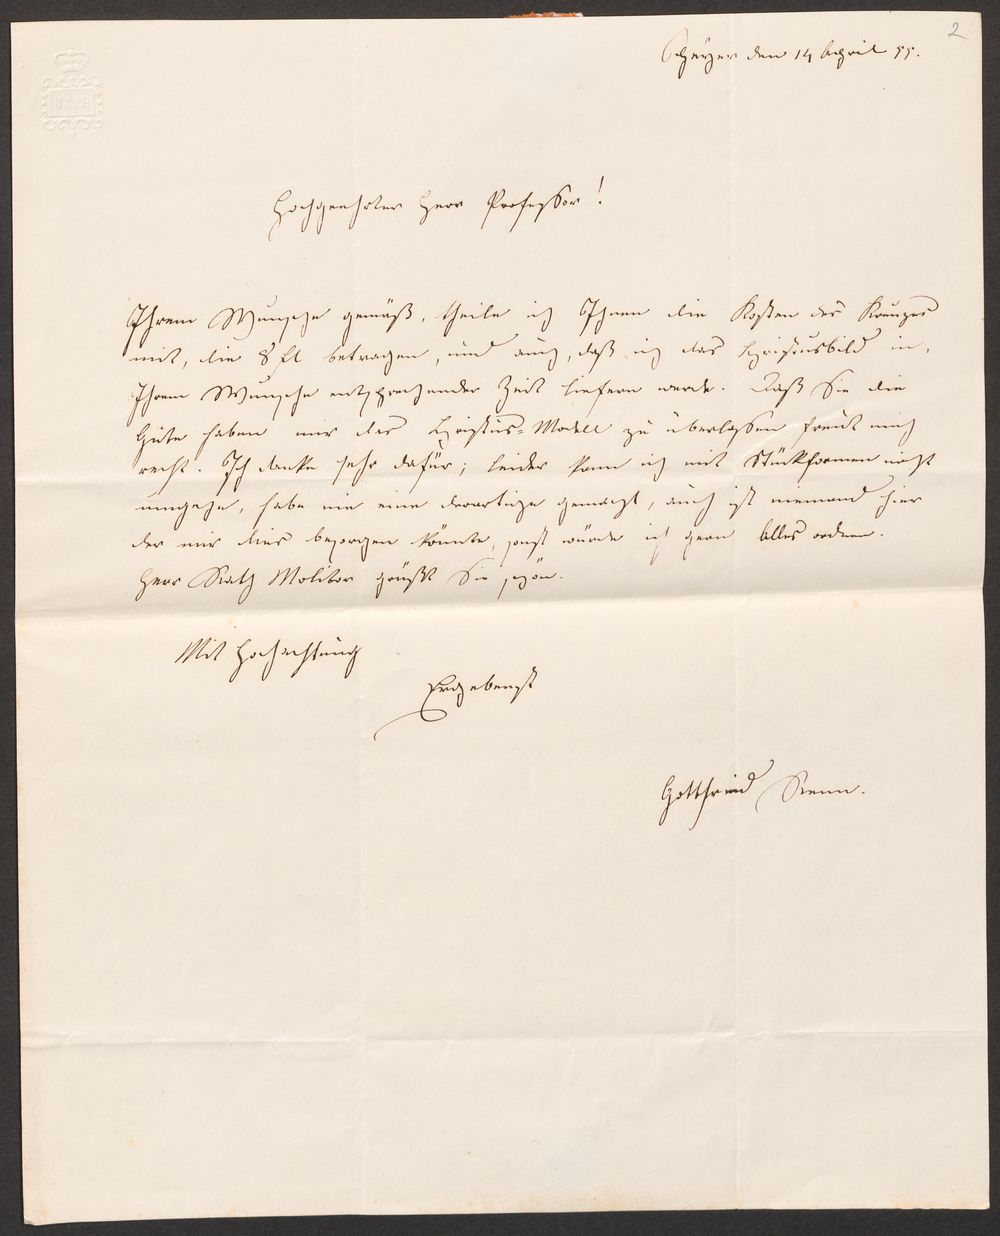 2
BATH
Speyer den 14 April 55.
Hochgeehrter Herr Professor!
Ihrem Wunsche gemäß, theile ich Ihnen die Kosten des Kreuzes
mit, die 8 fl betragen, und auch, daß ich das Christusbild in,
Ihrem Wunsche entsprechender Zeit liefern werde. Daß Sie die
Güte haben mir das Christus-Modell zu überlassen freut mich
recht. Ich danke sehr dafür; leider kann ich mit Stückformen nicht
umgehe, habe nie eine derartige gemacht, auch ist niemand hier
der mir dies besorgen könnte, sonst würde ich gern Alles ordnen.
Herr Rath Molitor grüßt Sie schön.
Mit Hochachtung
Ergebenst
Gottfried Renn.